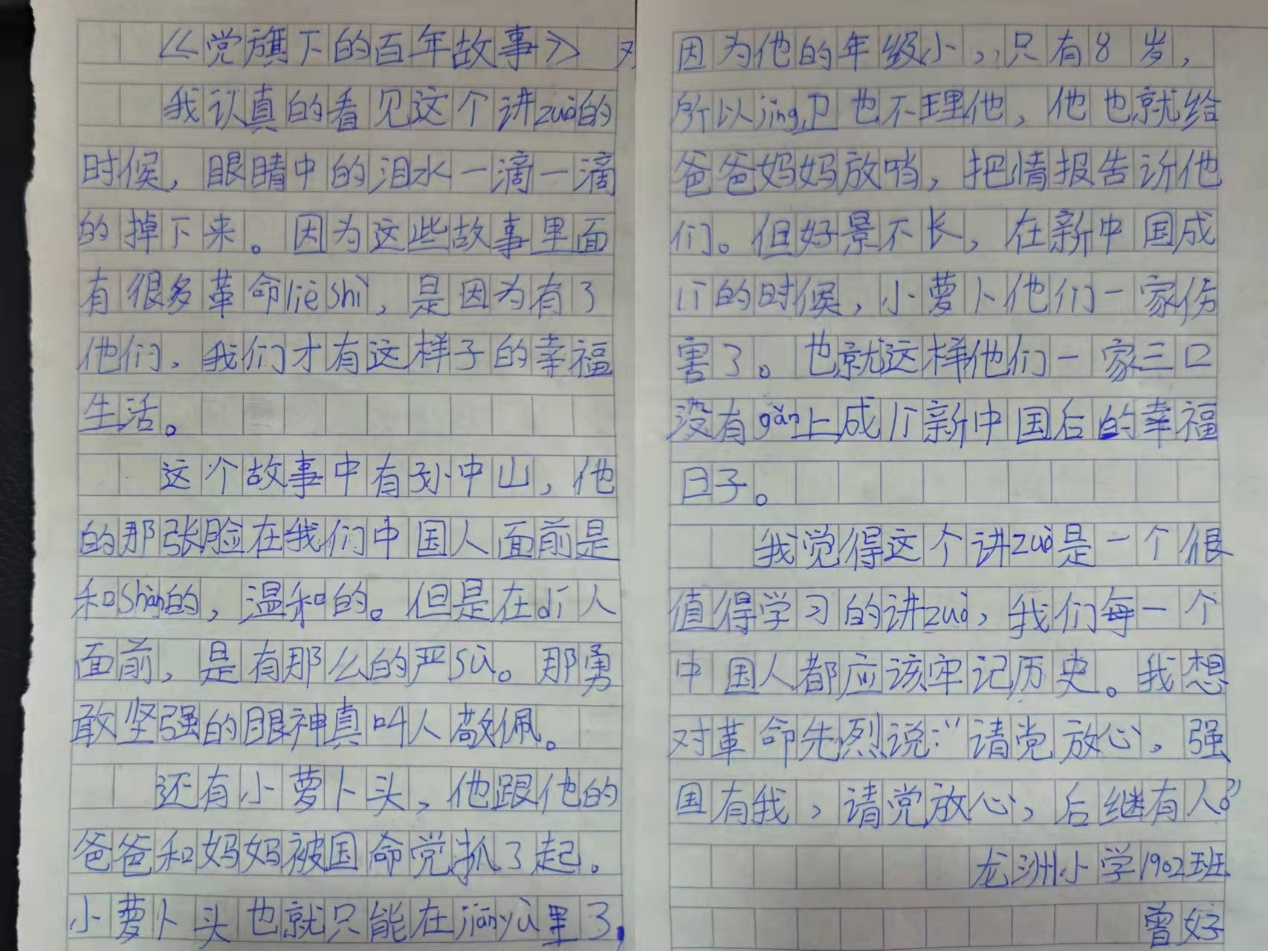 《党旗下的百年故事》
我认真的看见这个讲zuò的
时候，眼睛中的泪水一滴一滴
的掉下来。因为这些故事里面
有很多革命liè shì，是因为有了
他们，我们才有这样子的幸福
生活。
这个故事中有孙中山，他
的那张脸在我们中国人面前是
和shàn的，温和的。但是在dí人
面前，是有那么的严sù。那勇
敢坚强的眼神真叫人敬佩。
还有小萝卜头，他跟他的
爸爸和妈妈被国命党抓了起。
小萝卜头也就只能在jiānyù里了，
因为他的年级小，，只有8岁，
所以jǐng卫也不理他，他也就给
爸爸妈妈放哨，把情报告诉他
们。但好景不长，在新中国成
lì的时候，小萝卜他们一家伤
害了。也就这样他们一家三口
没有gǎn上成lì新中国后的幸福
日子。
我觉得这个讲zuò是一个很
值得学习的讲zuò，我们每一个
中国人都应该牢记历史。我想
对革命先烈说：“请党放心，强
国有我，请党放心，后继有人。”
龙洲小学1902班
曾好